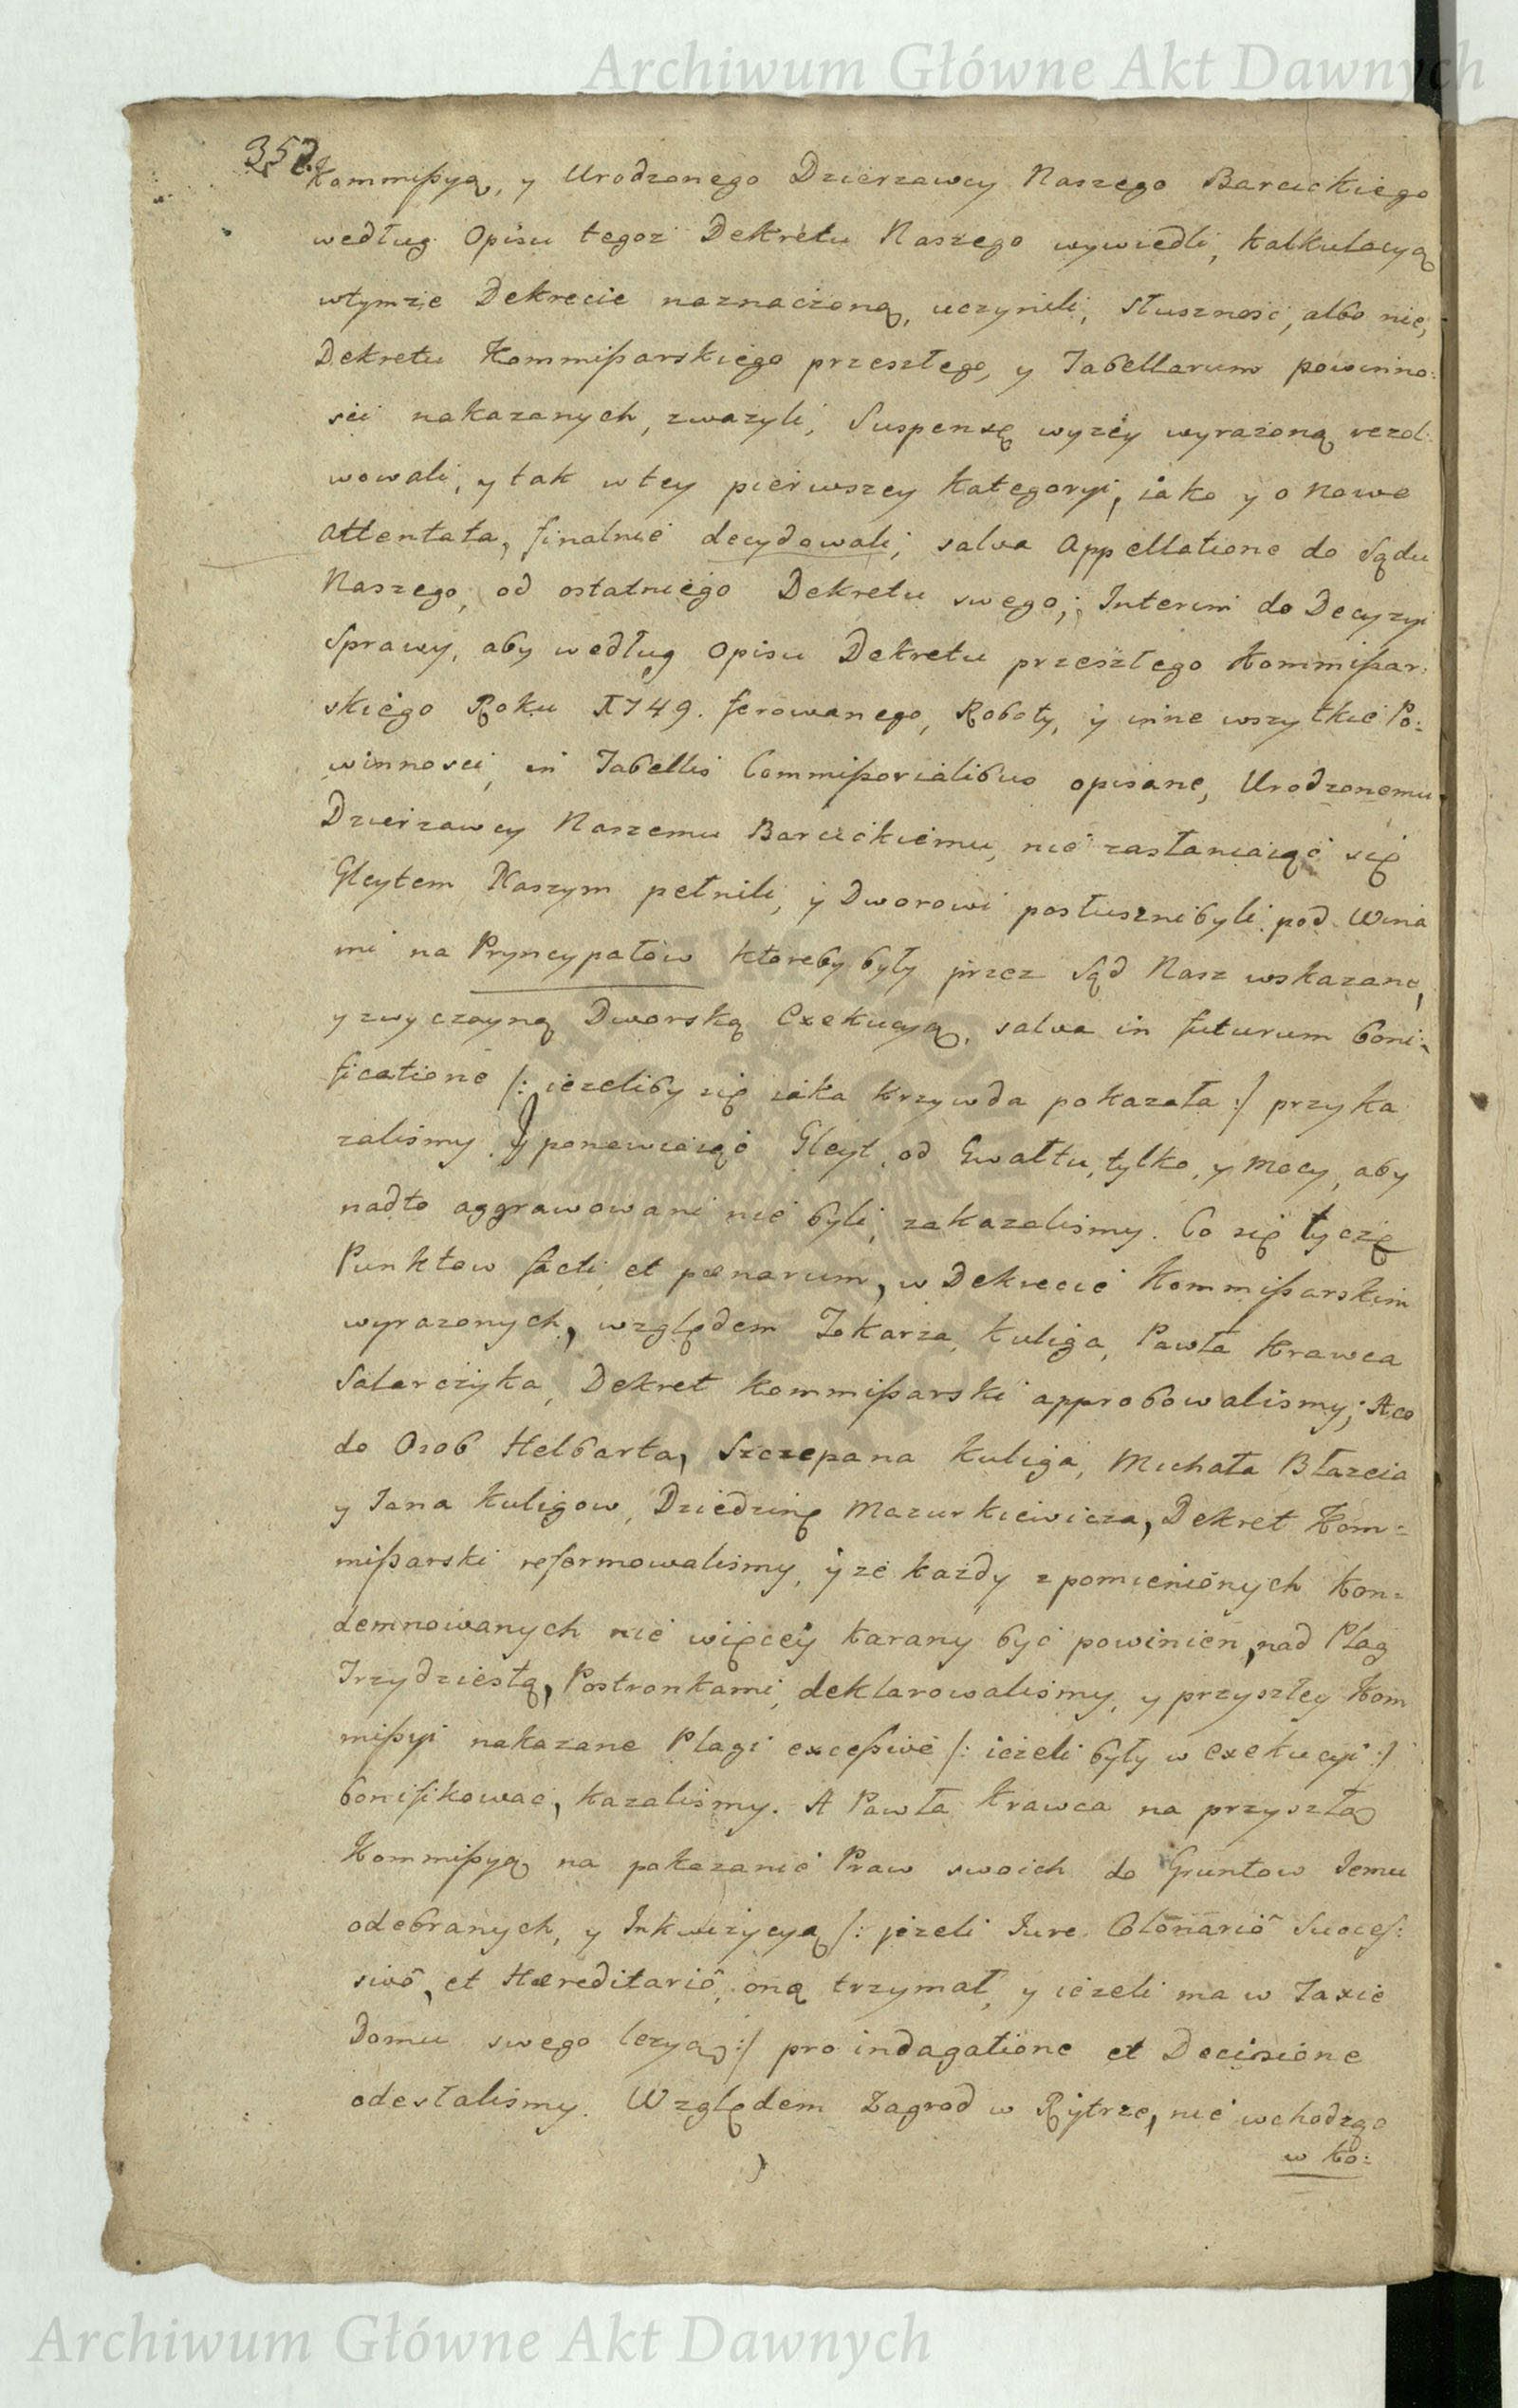 Archiwum Główne Akt Dawnych
352.
Kommißyą, y Urodzonego Dzierzawcy Naszego Barcickiego
według Opisu tegoz Dekretu Naszego wywiedli, kalkulacyą
wtymze Dekrecie naznaczoną, uczynili, słusznosć, albo nie,
Dekretu Kommißarskiego przeszłego, y Tabellarum powinno:
sci nakazanych, zwazyli, Suspensę wyzey wyrazoną rezol:
wowali, y tak w tey pierwszey Kategoryi, iako y o nowe
attentata, finalnie decydowali, salva Appellatione do Sądu
Naszego, od ostatniego Dekretu swego; Interim do Decyzyi
Sprawy, aby według Opisu Dekretu przeszłego Kommißar:
skiego Roku 1749. ferowanego, Roboty, y inne wszytkie Po:
winnosci in Tabellis Commißorialibus opisane, Urodzonemu
Dzierzawcy Naszemu Barcickiemu, nie zasłaniaiąc się
Gleytem Naszym pełnili, y Dworowi posłuszni byli pod Wina
mi na Pryncypałow ktoreby były przez Sąd Nasz wskazane,
y zwyczayną Dworską Exekucyą, salva in futurum boni:
ficatione /: iezeliby się iaka krzywda pokazała :/ przyka
zalismy. Y ponawiaiąc Gleyt, od Gwałtu, tylko, y mocy, aby
nadto aggrawowani nie byli, zakazalismy. Co się tycze
Punktow facti et pœnarum, w Dekrecie Kommißarskim
wyrazonych, względem Tokarza, Kuliga, Pawła Krawca
Salarczyka, Dekret Kommißarski approbowalismy; A co
do Osob Helbarta, Szczepana Kuliga, Michała Błazcia
y Jana Kuligow, Dziedzinę Mazurkiewicza, Dekret Kom=
mißarski reformowalismy, y ze kazdy z pomienionych Kon=
demnowanych nie więcey karany być powinien, nad Plag
Trzydziestą, Postronkami, deklarowalismy, y przyszłey Kom
mißyi nakazane Plagi exceßive /: iezeli były w exekucyi :/
bonifikowac, kazalismy. A Pawła Krawca na przyszłą
Kommißyą na pokazanie Praw swoich do Gruntow Jemu
odebranych, y Inkwizycyą /: jezeli Jure Colonariô Succeß:
sivô, et Hæreditariô, oną trzymał, y iezeli ma w Taxie
Domu swego lezyą :/ pro indagatione et Decisione
odesłalismy. Względem Zagrod w Rytrze, nie wchodząc
w Ko:
Archiwum Główne Akt Dawnych